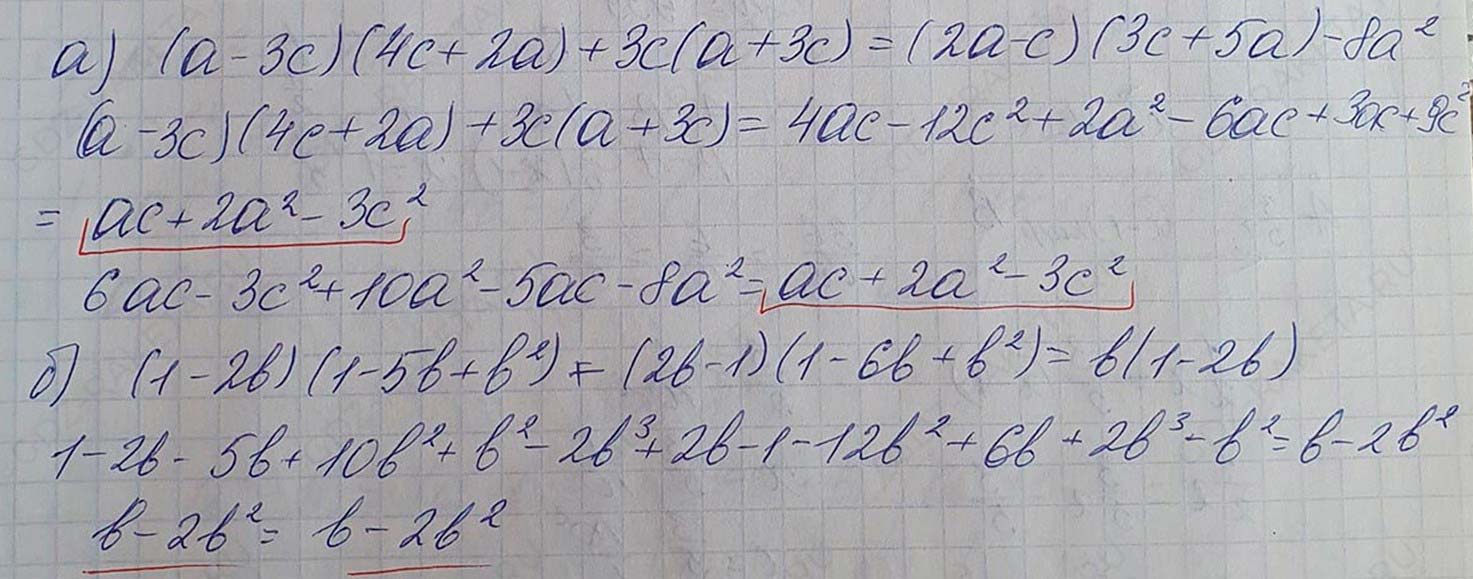 а) (a-3c)(4c+2a)+3c(a+3c)=(2a-c)(3c+5a)-8a²
(a-3c)(4c+2a)+3c(a+3c)=4ac-12c²+2a²-6ac+3ac+9c²
= ac+2a²-3c²
6ac-3c²+10a²-5ac-8a²=ac+2a²-3c²
б) (1-2b)(1-5b+b²)+(2b-1)(1-6b+b²)=b(1-2b)
1-2b-5b+10b²+b²-2b³+2b-1-12b²+6b+2b³-b²=b-2b²
b-2b²= b-2b²